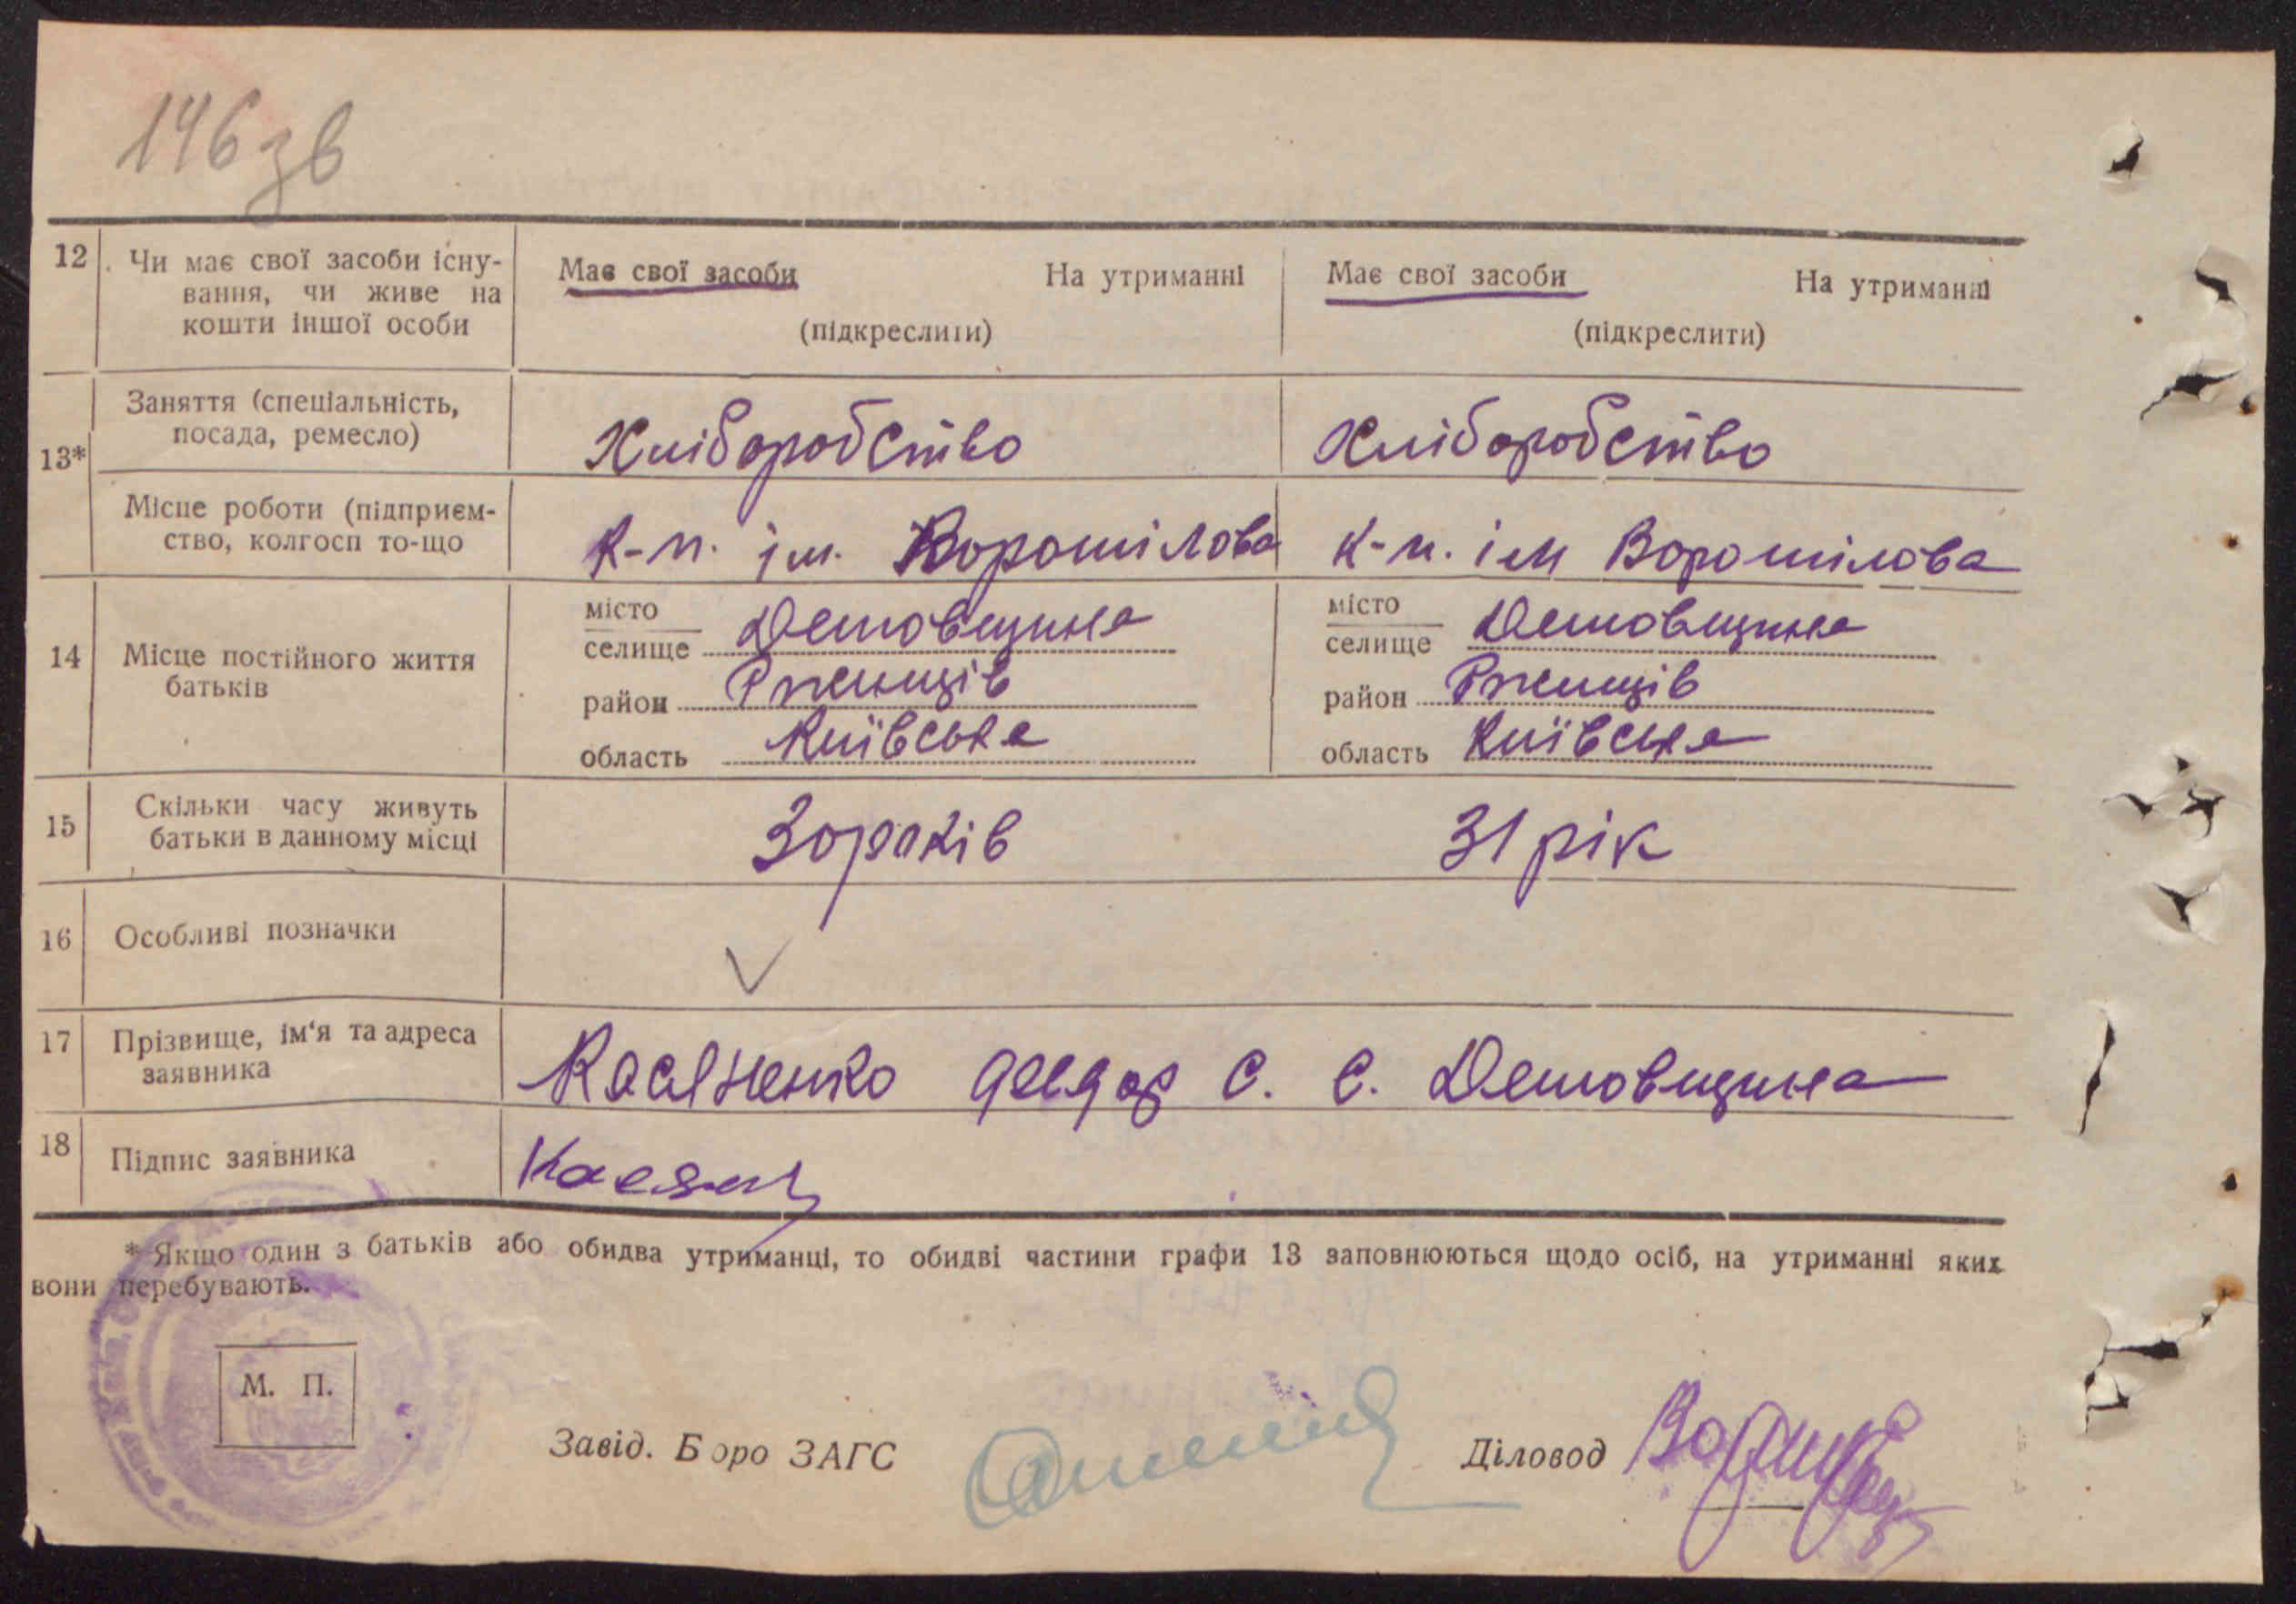 146 зв
12 Чи має свої засоби існу-
вання, чи живе на
кошти іншої особи
Має свої засоби На утриманні
(підкреслити)
Має свої засоби На утриманні
(підкреслити)
13*
Заняття (спеціальність,
посада, ремесло)
Хліборобство
Хліборобство
Місце роботи (підприєм-
ство, колгосп то-що
к-п. ім. Ворошілова
к-п. ім Ворошілова
14 Місце постійного життя
батьків
місто
селище Демовщина
район Ржищів
область Київська
місто
селище Демовщина
район Ржищів
область Київська
15 Скільки часу живуть
батьки в данному місці
30 років
31 рік
16 Особливі позначки
17 Прізвище, ім'я та адреса
заявника
Касяненко С. с. Демовщина
18 Підпис заявника
* Якщо один з батьків або обидва утриманці, то обидві частини графи 13 заповнюються щодо осіб, на утриманні яких
вони перебувають.
М. П.
Завід. Бюро ЗАГС
Діловод